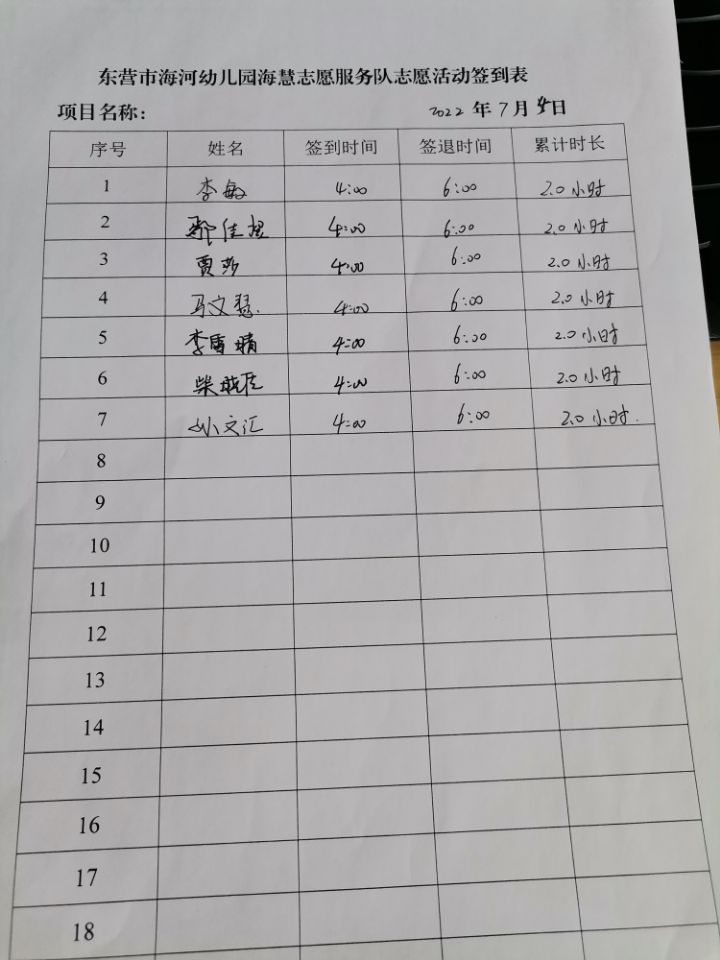 东营市海河幼儿园海慧志愿服务队志愿活动签到表
项目名称： 2022 年 7 月 4 日
序号 姓名 签到时间 签退时间 累计时长
1 李敏 4:00 6:00 2.0 小时
2 4:00 6:00 2.0 小时
3 贾莎 4:00 6:00 2.0 小时
4 马文瑟 4:00 6:00 2.0 小时
5 李雷晴 4:00 6:00 2.0 小时
6 柴 4:00 6:00 2.0 小时
7 孙文汇 4:00 6:00 2.0 小时.
8
9
10
11
12
13
14
15
16
17
18